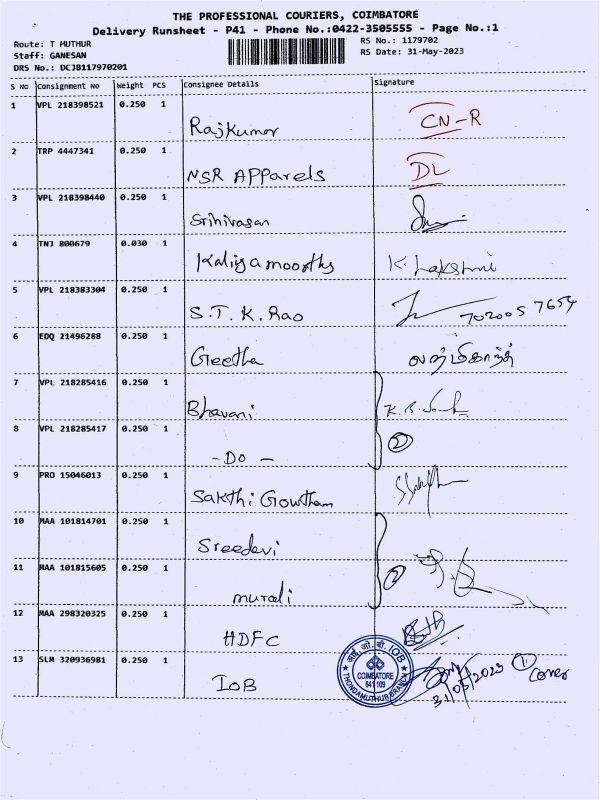 THE PROFESSIONAL COURIERS, COIMBATORE
Delivery Runsheet - P41 - Phone No.:0422-3505555 - Page No.:1
Route: T MUTHUR
Staff: GANESAN
DRS No.: DCJB117970201
RS No.: 1179702
RS Date: 31-May-2023
S No Consignment No Weight PCS Consignee Details Signature
1 VPL 218398521 0.250 1 Rajkumar CN-R
2 TRP 4447341 0.250 1 NSR APParels DL
3 VPL 218398440 0.250 1 Srinivasan
4 TNJ 800679 0.030 1 Kaliyamoorthy K. Lakshmi
5 VPL 218383304 0.250 1 S.T.K.Rao 702005 7654
6 EDQ 21496288 0.250 1 Geetha
7 VPL 218285416 0.250 1 Bhavani
8 VPL 218285417 0.250 1 -DO- 2
9 PRO 15046013 0.250 1 Sakthi Gowtham
10 MAA 101814701 0.250 1 Sreedevi
11 MAA 101815605 0.250 1 murali 2
12 MAA 298320325 0.250 1 HDFC
13 SLM 320936981 0.250 1 IOB
आई. ओ. बी. IOB
COIMBATORE
641 109
THONDAMUTHUR BRANCH
31/05/2023
1 Cover